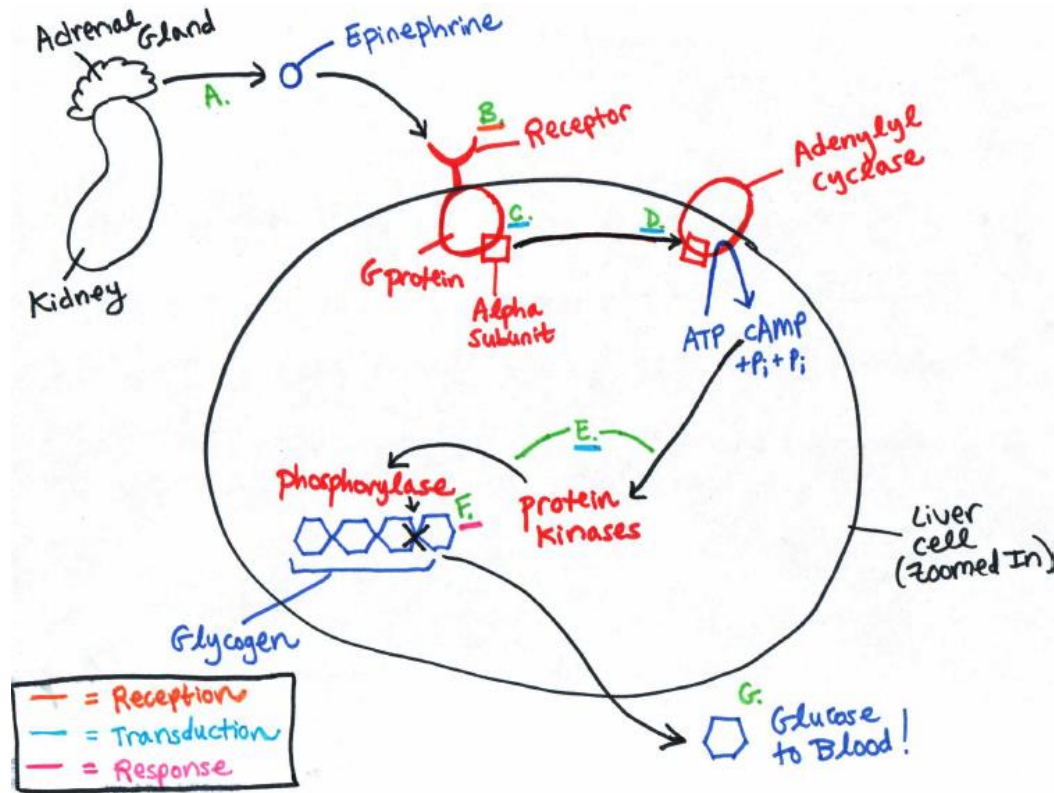 Adrenal Gland
A.
Epinephrine
B.
Receptor
Adenylyl
cyclase
C.
D.
G protein
Alpha
subunit
Kidney
ATP cAMP
+Pi+Pi
E.
phosphorylase
F.
protein
kinases
Liver
cell
(Zoomed In)
Glycogen
G.
Glucose
to Blood!
= Reception
= Transduction
= Response